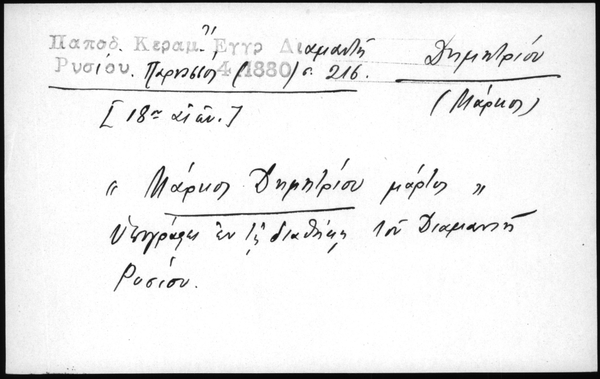 Παπαδ. Κεραμ. Ἔγγρ Διαμαντῆ
Ρυσίου. Παρνασσὸς 4 (1880) σ. 216.
Δημητρίου
(Μάρκος)
[18ου αἰῶν.]
« Μάρκος Δημητρίου μάρτυς »
Ὑπογράφει ἐν τῇ διαθήκῃ τοῦ Διαμαντῆ
Ρυσίου.